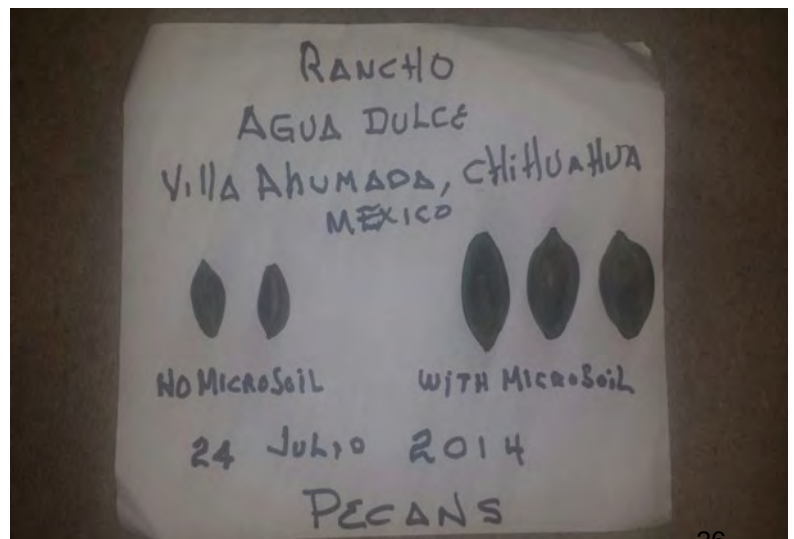 RANCHO
AGUA DULCE
Villa Ahumada, CHiHUAHUA
MEXICO
NO MICROSOiL WiTH MICROSOiL
24 Julio 2014
PECANS
26